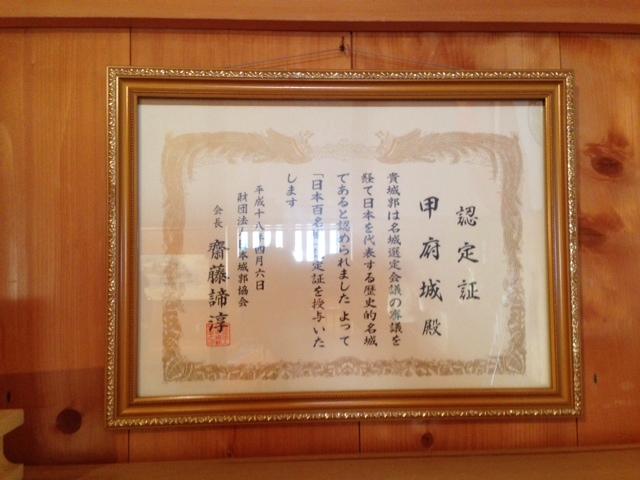 認定証
甲府城殿
貴城郭は名城選定会議の審議を
経て日本を代表する歴史的名城
であると認められました よって
「日本百名 定証を授与いた
します
平成十八年四月六日
財団法人日本城郭協会
会長 齋藤諦淳